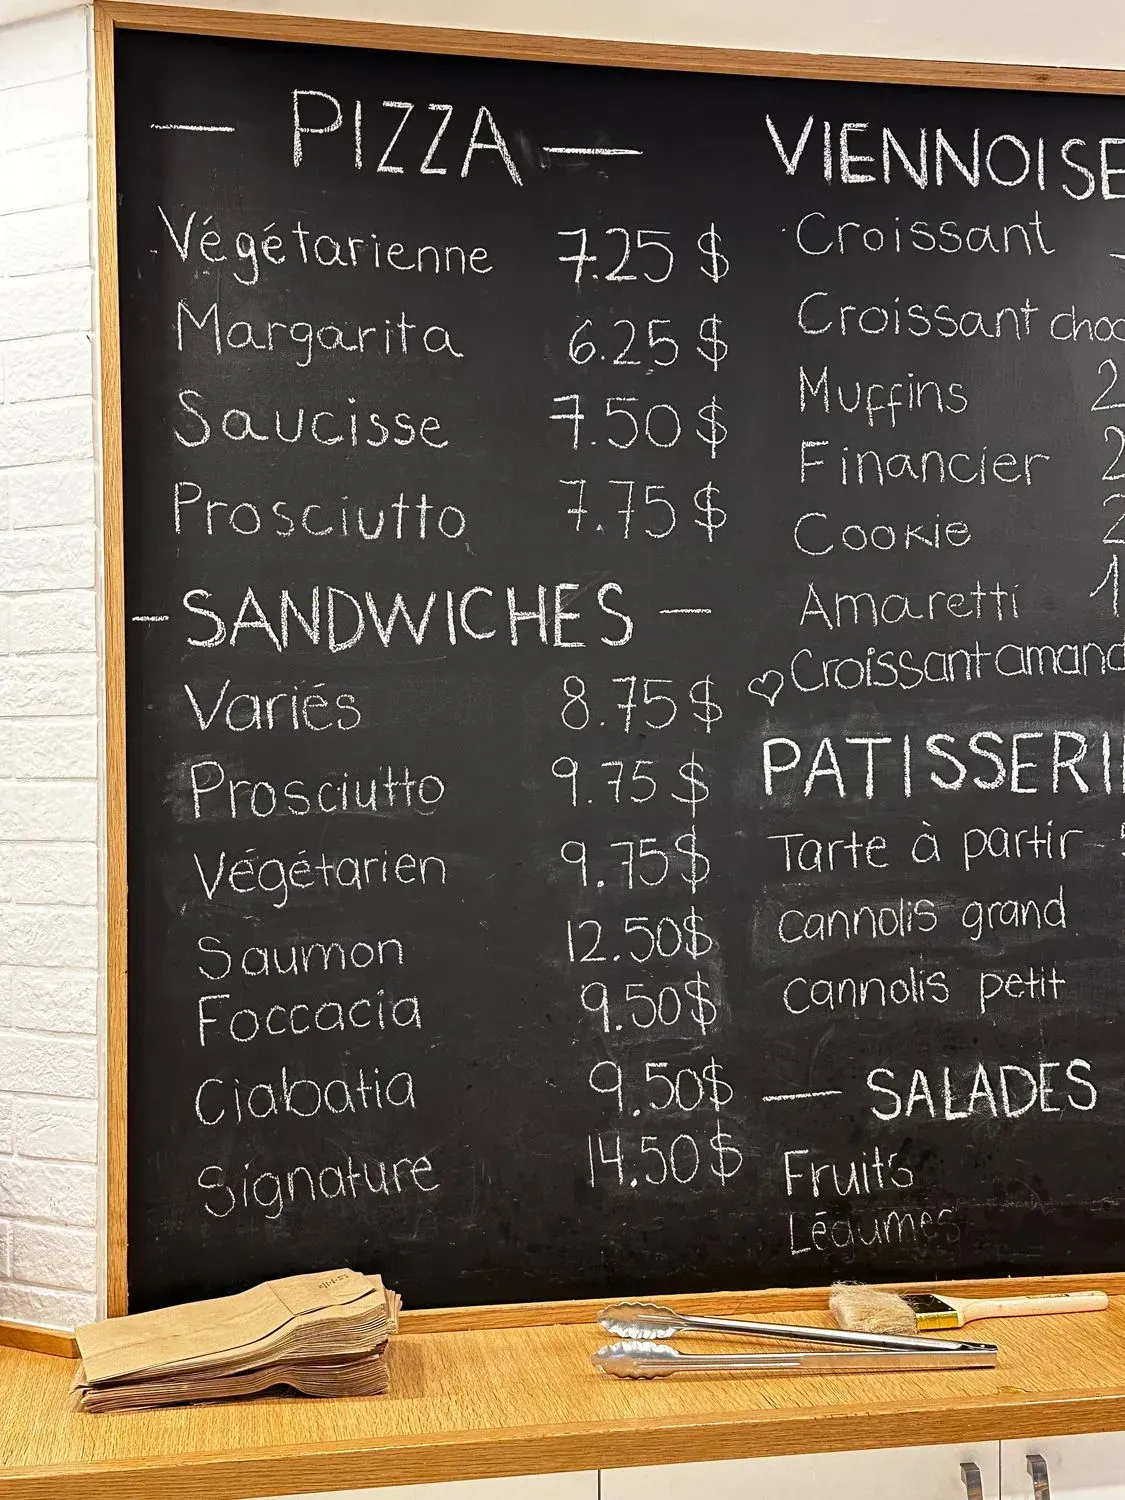 — PIZZA —
Végétarienne 7.25 $
Margarita 6.25 $
Saucisse 7.50 $
Prosciutto 7.75 $
- SANDWICHES —
Variés 8.75 $
Prosciutto 9.75 $
Végétarien 9.75 $
Saumon 12.50 $
Foccacia 9.50 $
Ciabatia 9.50 $
Signature 14.50 $
VIENNOISE
Croissant
Croissant choc
Muffins 2
Financier 2
Cookie 2
Amaretti 1
♡ Croissant amand
PATISSERI
Tarte à partir
cannolis grand
cannolis petit
— SALADES
Fruits
Légumes